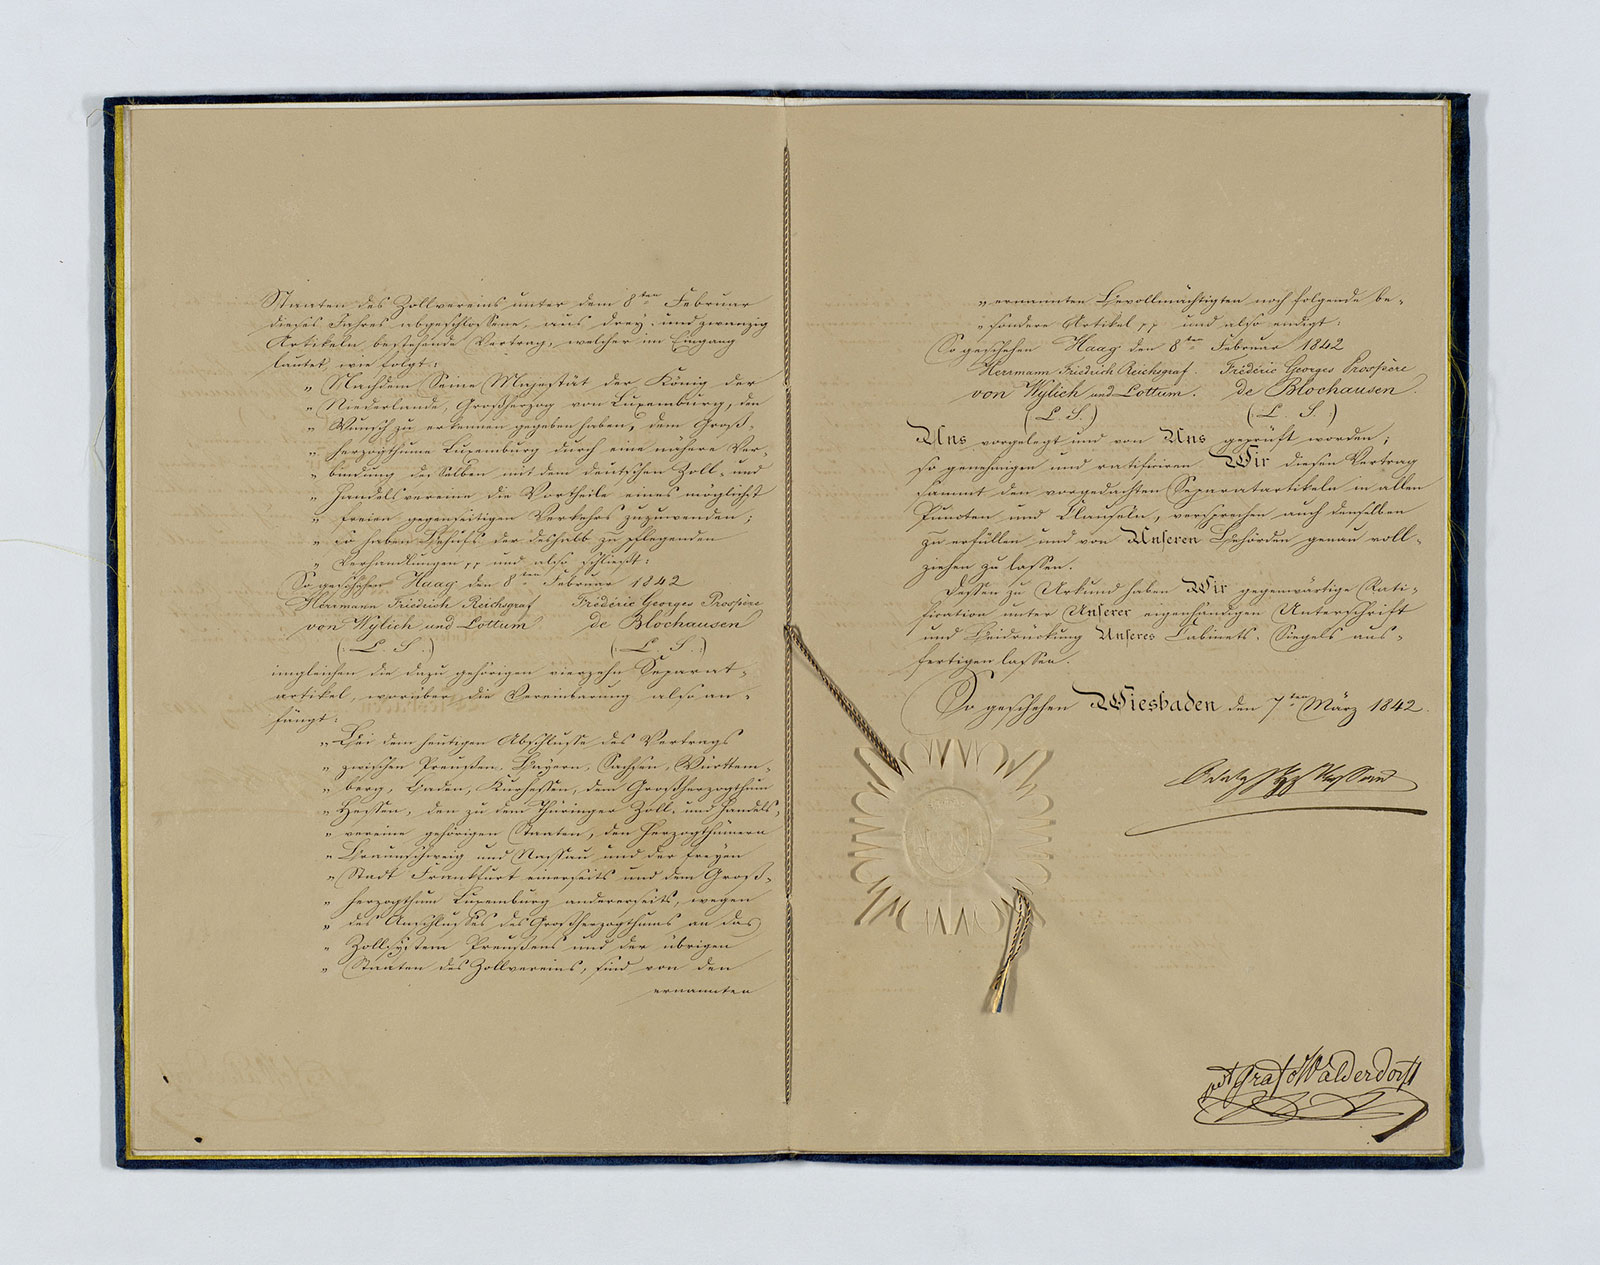 Staaten des Zollvereins unter dem 8ten Februar
dieses Jahres abgeschlossene, aus drey und zwanzig
Artikeln bestehende Vertrag, welcher im Eingang
lautet, wie folgt:
„ Nachdem Seine Majestät der König der
„ Niederlande, Großherzog von Luxemburg, den
„ Wunsch zu erkennen gegeben haben, dem Groß-
„ herzogthume Luxemburg durch eine nähere Ver-
„ bindung desselben mit dem deutschen Zoll- und
„ Handelsvereine die Vortheile eines möglichst
„ freien gegenseitigen Verkehrs zuzuwenden;
„ so haben Behufs der deshalb zu pflegenden
„ Verhandlungen pp und also schließt:
So geschehen Haag den 8ten Februar 1842
Herrmann Friedrich Reichsgraf Frédéric Georges Prospère
von Wylich und Lottum de Blochausen
(: L. S. :) (: L. S. :)
imgleichen die dazu gehörigen vierzehn Separat-
artikel, worüber die Vereinbarung also an-
fängt:
„ Bei dem heutigen Abschlusse des Vertrags
„ zwischen Preußen, Bayern, Sachsen, Württem-
„ berg, Baden, Kurhessen, dem Großherzogthum
„ Hessen, den zu dem Thüringer Zoll- und Handels-
„ vereine gehörigen Staaten, den Herzogthümern
„ Braunschweig und Nassau und der freyen
„ Stadt Frankfurt einerseits und dem Groß-
„ herzogthum Luxemburg andererseits, wegen
„ des Anschlusses des Großherzogthums an das
„ Zollsystem Preußens und der übrigen
„ Staaten des Zollvereins, sind von den
ernannten
„ ernannten Bevollmächtigten noch folgende be-
„ sondere Artikel pp und also endigt:
So geschehen Haag den 8ten Februar 1842
Herrmann Friedrich Reichsgraf. Frédéric Georges Prospère
von Wylich und Lottum. de Blochausen.
(: L. S. :) (: L. S. :)
Uns vorgelegt und von Uns geprüft worden;
so genehmigen und ratificiren Wir diesen Vertrag
sammt den vorgedachten Separatartikeln in allen
Puncten und Clauseln, versprechen auch denselben
zu erfüllen und von Unseren Behörden genau voll-
ziehen zu lassen.
Dessen zu Urkund haben Wir gegenwärtige Rati-
fication unter Unserer eigenhändigen Unterschrift
und Beidrückung Unseres Cabinets-Siegels aus-
fertigen lassen.
So geschehen Wiesbaden den 7ten März 1842.
Adolph Nassau
vdt Graf Walderdorff